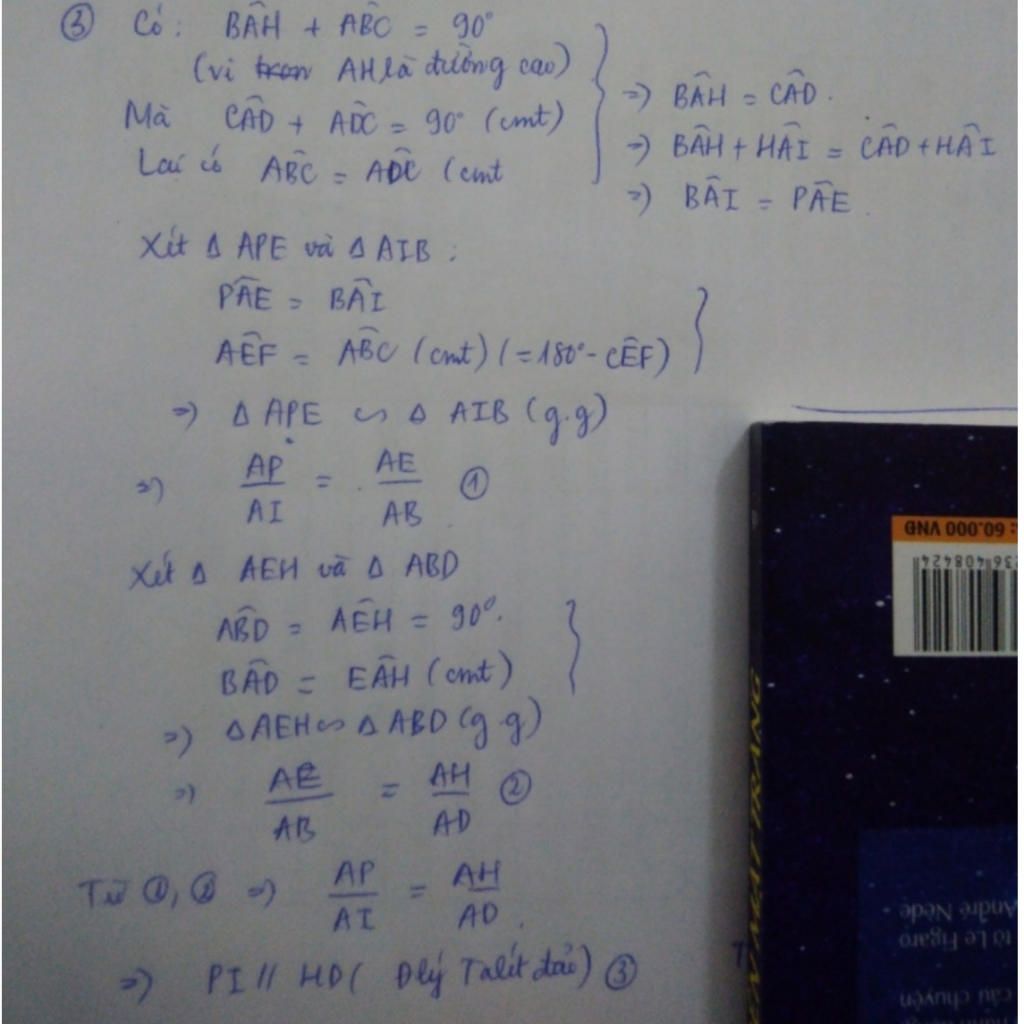 ③ Có : BÂH + AB̂C = 90°
(vì tron AH là đường cao)
Mà CÂD + AD̂C = 90° (cmt)
Lại có AB̂C = AD̂C (cmt
=> BÂH = CÂD.
=> BÂH + HÂI = CÂD + HÂI
=> BÂI = PÂE.
Xét Δ APE và Δ AIB :
PÂE = BÂI
AÊF = AB̂C (cmt) (=180° - CÊF)
=> Δ APE ∽ Δ AIB (g.g)
=> AP/AI = AE/AB ①
Xét Δ AEH và Δ ABD
AB̂D = AÊH = 90°.
BÂD = EÂH (cmt)
=> ΔAEH ∽ Δ ABD (g.g)
=> AE/AB = AH/AD ②
Từ ①, ② => AP/AI = AH/AD.
=> PI // HD ( Đlý Talét đảo) ③
: 60.000 VNĐ
236408424
MẶT TRĂNG
André Nède -
tờ Le Figaro
câu chuyện